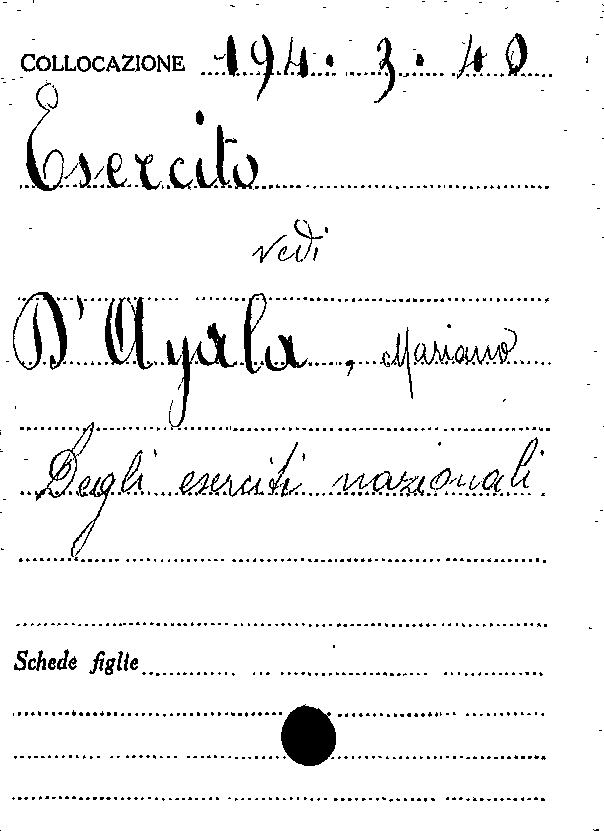 COLLOCAZIONE 194.3.40
Esercito
vedi
D'Ayala, Mariano
Degli eserciti nazionali
Schede figlie